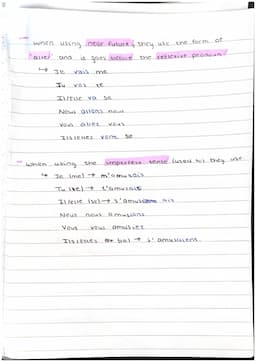 - When using near future, they use the form of
"aller" and is goes before the reflexive pronoun
↳ Je vais me
Tu vas te
Il/elle va se
Nous allons nous
Vous allez vous
Ils/elles vont se
- When using the imperfect tense (used to) they use
↳ Je (me) → m'amusais
Tu (te) → t'amusais
Il/elle (se) → s'amusait
Nous nous amusions
Vous vous amusiez
Ils/elles (se) → s'amusaient.